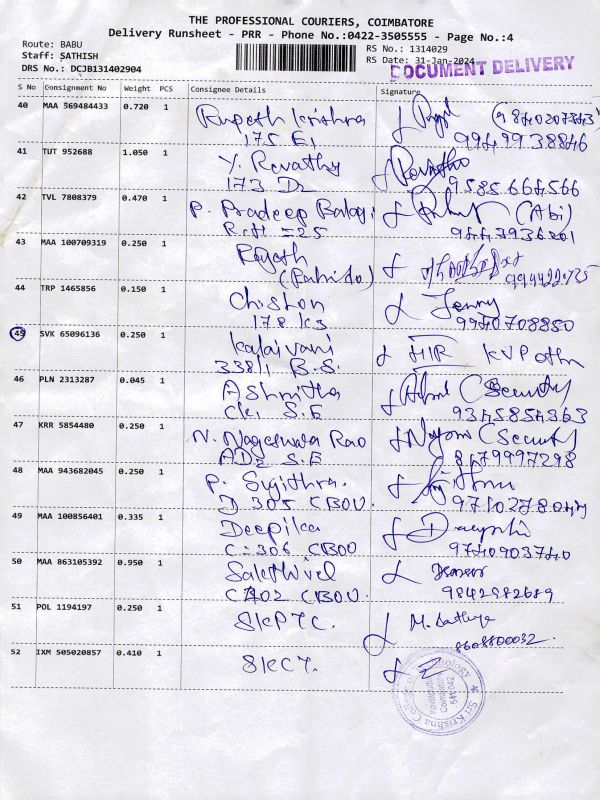 THE PROFESSIONAL COURIERS, COIMBATORE
Delivery Runsheet - PRR - Phone No.:0422-3505555 - Page No.:4
Route: BABU
RS No.: 1314029
Staff: SATHISH
RS Date: 31-Jan-2024
DRS No.: DCJB131402904
DOCUMENT DELIVERY
S No Consignment No Weight PCS Consignee Details Signature
40 MAA 969484433 0.720 1 Rupesh Krishna
175 E1 9949938846
41 TUT 952688 1.050 1 Y. Revathy Revathy
173 D2 9585664566
42 TVL 7808379 0.470 1 P. Pradeep Balaji (Abi)
R.H = 25 9443936201
43 MAA 100709319 0.250 1 Rajesh
44 TRP 1465856 0.150 1 Jenny
178 KS 9940708850
45 SVK 65096136 0.250 1 Kalaivani HIR
338/1 B.S.
46 PLN 2313287 0.045 1 Ashmitha (Security
S.E 9345854363
47 KRR 5854480 0.250 1 N. Nageswara Rao (Security
AD2 S.E 8179997298
48 MAA 943682045 0.250 1 P. Sujithra
D 305 CBOU
49 MAA 100856401 0.335 1 Deepika
C-306 CBOU 9740903740
50 MAA 863105392 0.950 1 Sakthivel
C402 CBOU. 9842982689
51 POL 1194197 0.250 1 SKPTC. M. Sathya
8608800032.
52 IXM 505020857 0.410 1 SKCT.
Sri Krishna College of Technology
Kovaipudur
Coimbatore
641 042